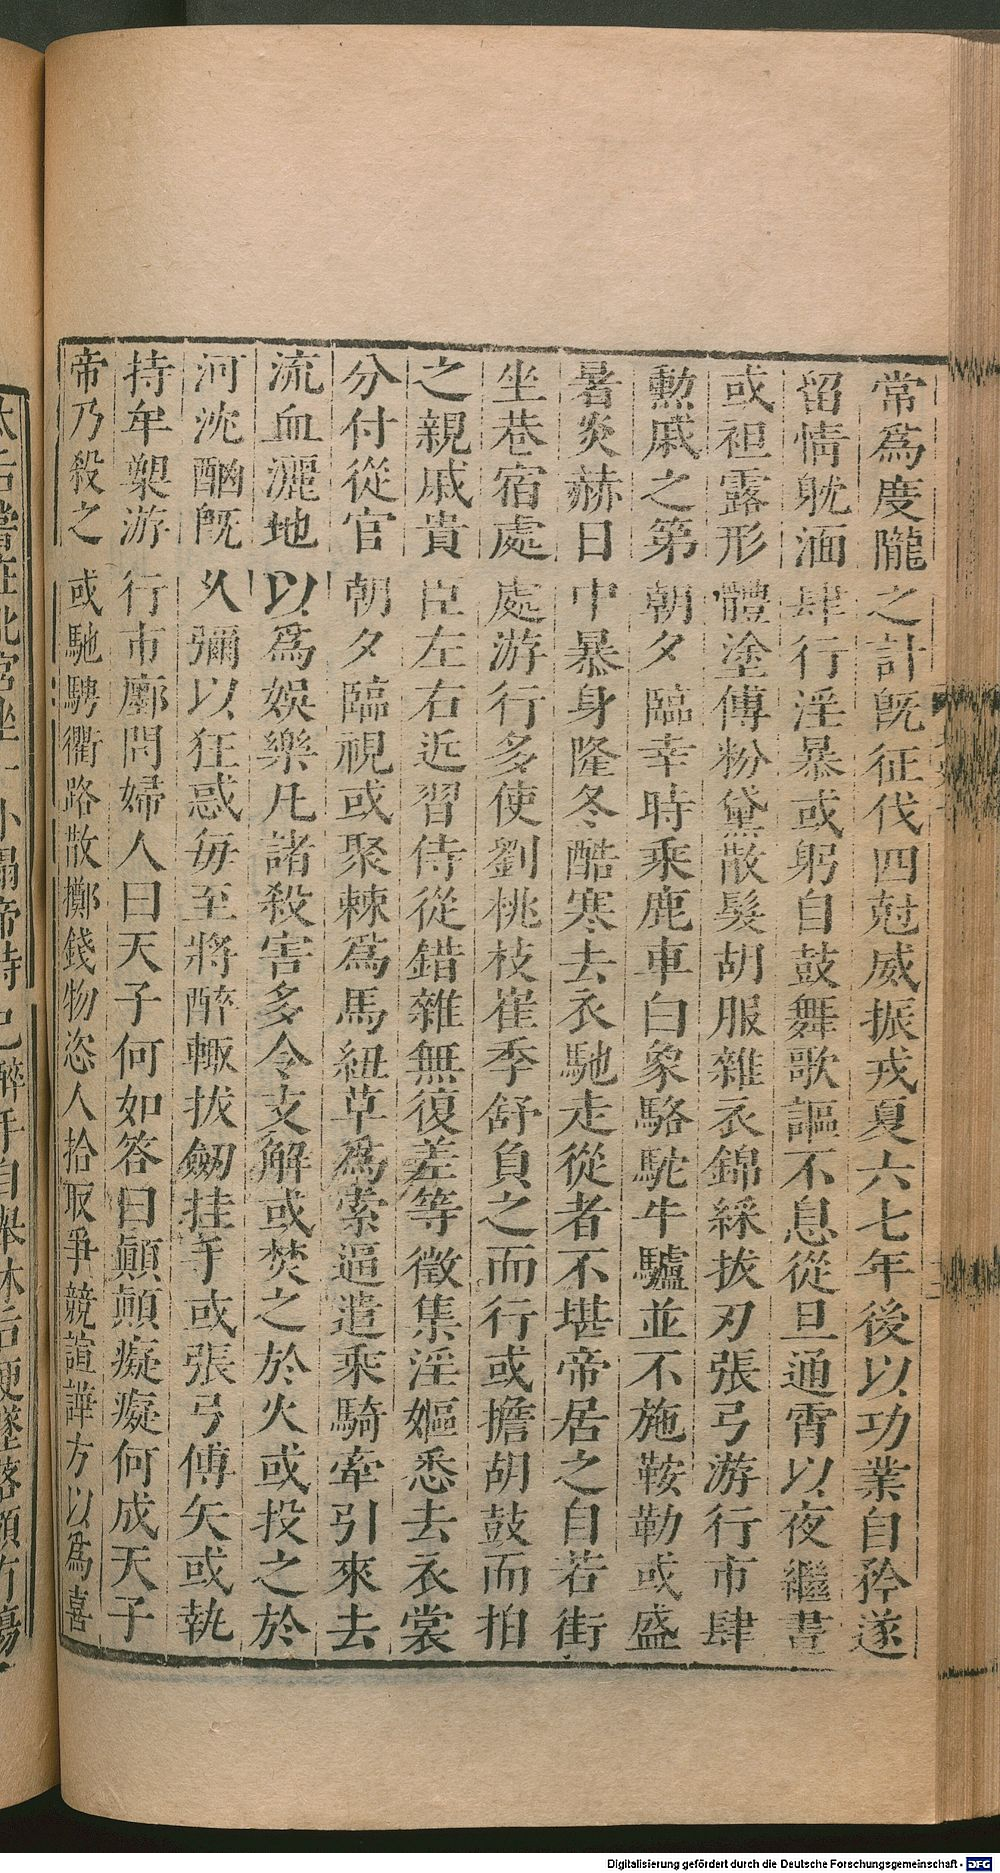 常爲度隴之計旣征伐四尅威振戎夏六七年後以功業自矜遂
留情躭湎肆行淫暴或躬自鼓舞歌謳不息從旦通霄以夜繼晝
或袒露形體塗傅粉黛散髮胡服雜衣錦綵拔刃張弓游行市肆
勲戚之第朝夕臨幸時乘鹿車白象駱駝牛驢並不施鞍勒或盛
暑炎赫日中暴身隆冬酷寒去衣馳走從者不堪帝居之自若街
坐巷宿處處游行多使劉桃枝崔季舒負之而行或擔胡鼓而拍
之親戚貴臣左右近習侍從錯雜無復差等徵集淫嫗悉去衣裳
分付從官朝夕臨視或聚棘爲馬紐草爲索逼遣乘騎牽引來去
流血灑地以爲娛樂凡諸殺害多令支解或焚之於火或投之於
河沈酗旣久彌以狂惑每至將醉輙拔劒挂手或張弓傅矢或執
持牟槊游行市廛問婦人曰天子何如答曰顚顚癡癡何成天子
帝乃殺之或馳騁衢路散擲錢物恣人拾取爭競諠譁方以爲喜
太后嘗在北宫坐一小榻帝時已醉手自舉牀后便墜落頗有傷
Digitalisierung gefördert durch die Deutsche Forschungsgemeinschaft - DFG